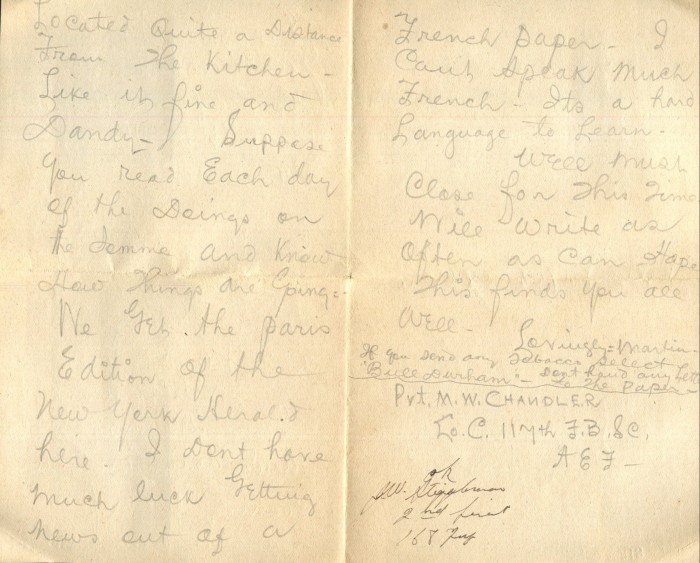 Located Quite a Distance
From The Kitchen -
Like it fine and
Dandy - Suppose
You read Each day
of the Doings on
the Somme and Know
How Things are Going =
We Get the paris
Edition of the
New York Herald
here. I Dont have
much luck Getting
news out of a
French paper - I
Can't Speak Much
French - Its a hard
Language to Learn -
Well Must
Close for This Time
Will write as
Often as can Hope
This finds you all
Well -
Lovingly = Martin -
If you send any Tobacco select
"Bull Durham" - Dont have any
to The Paper -
Pvt. M.W. CHANDLER
Co. C. 117th F.B.S.C.
A E F -
ok
2nd